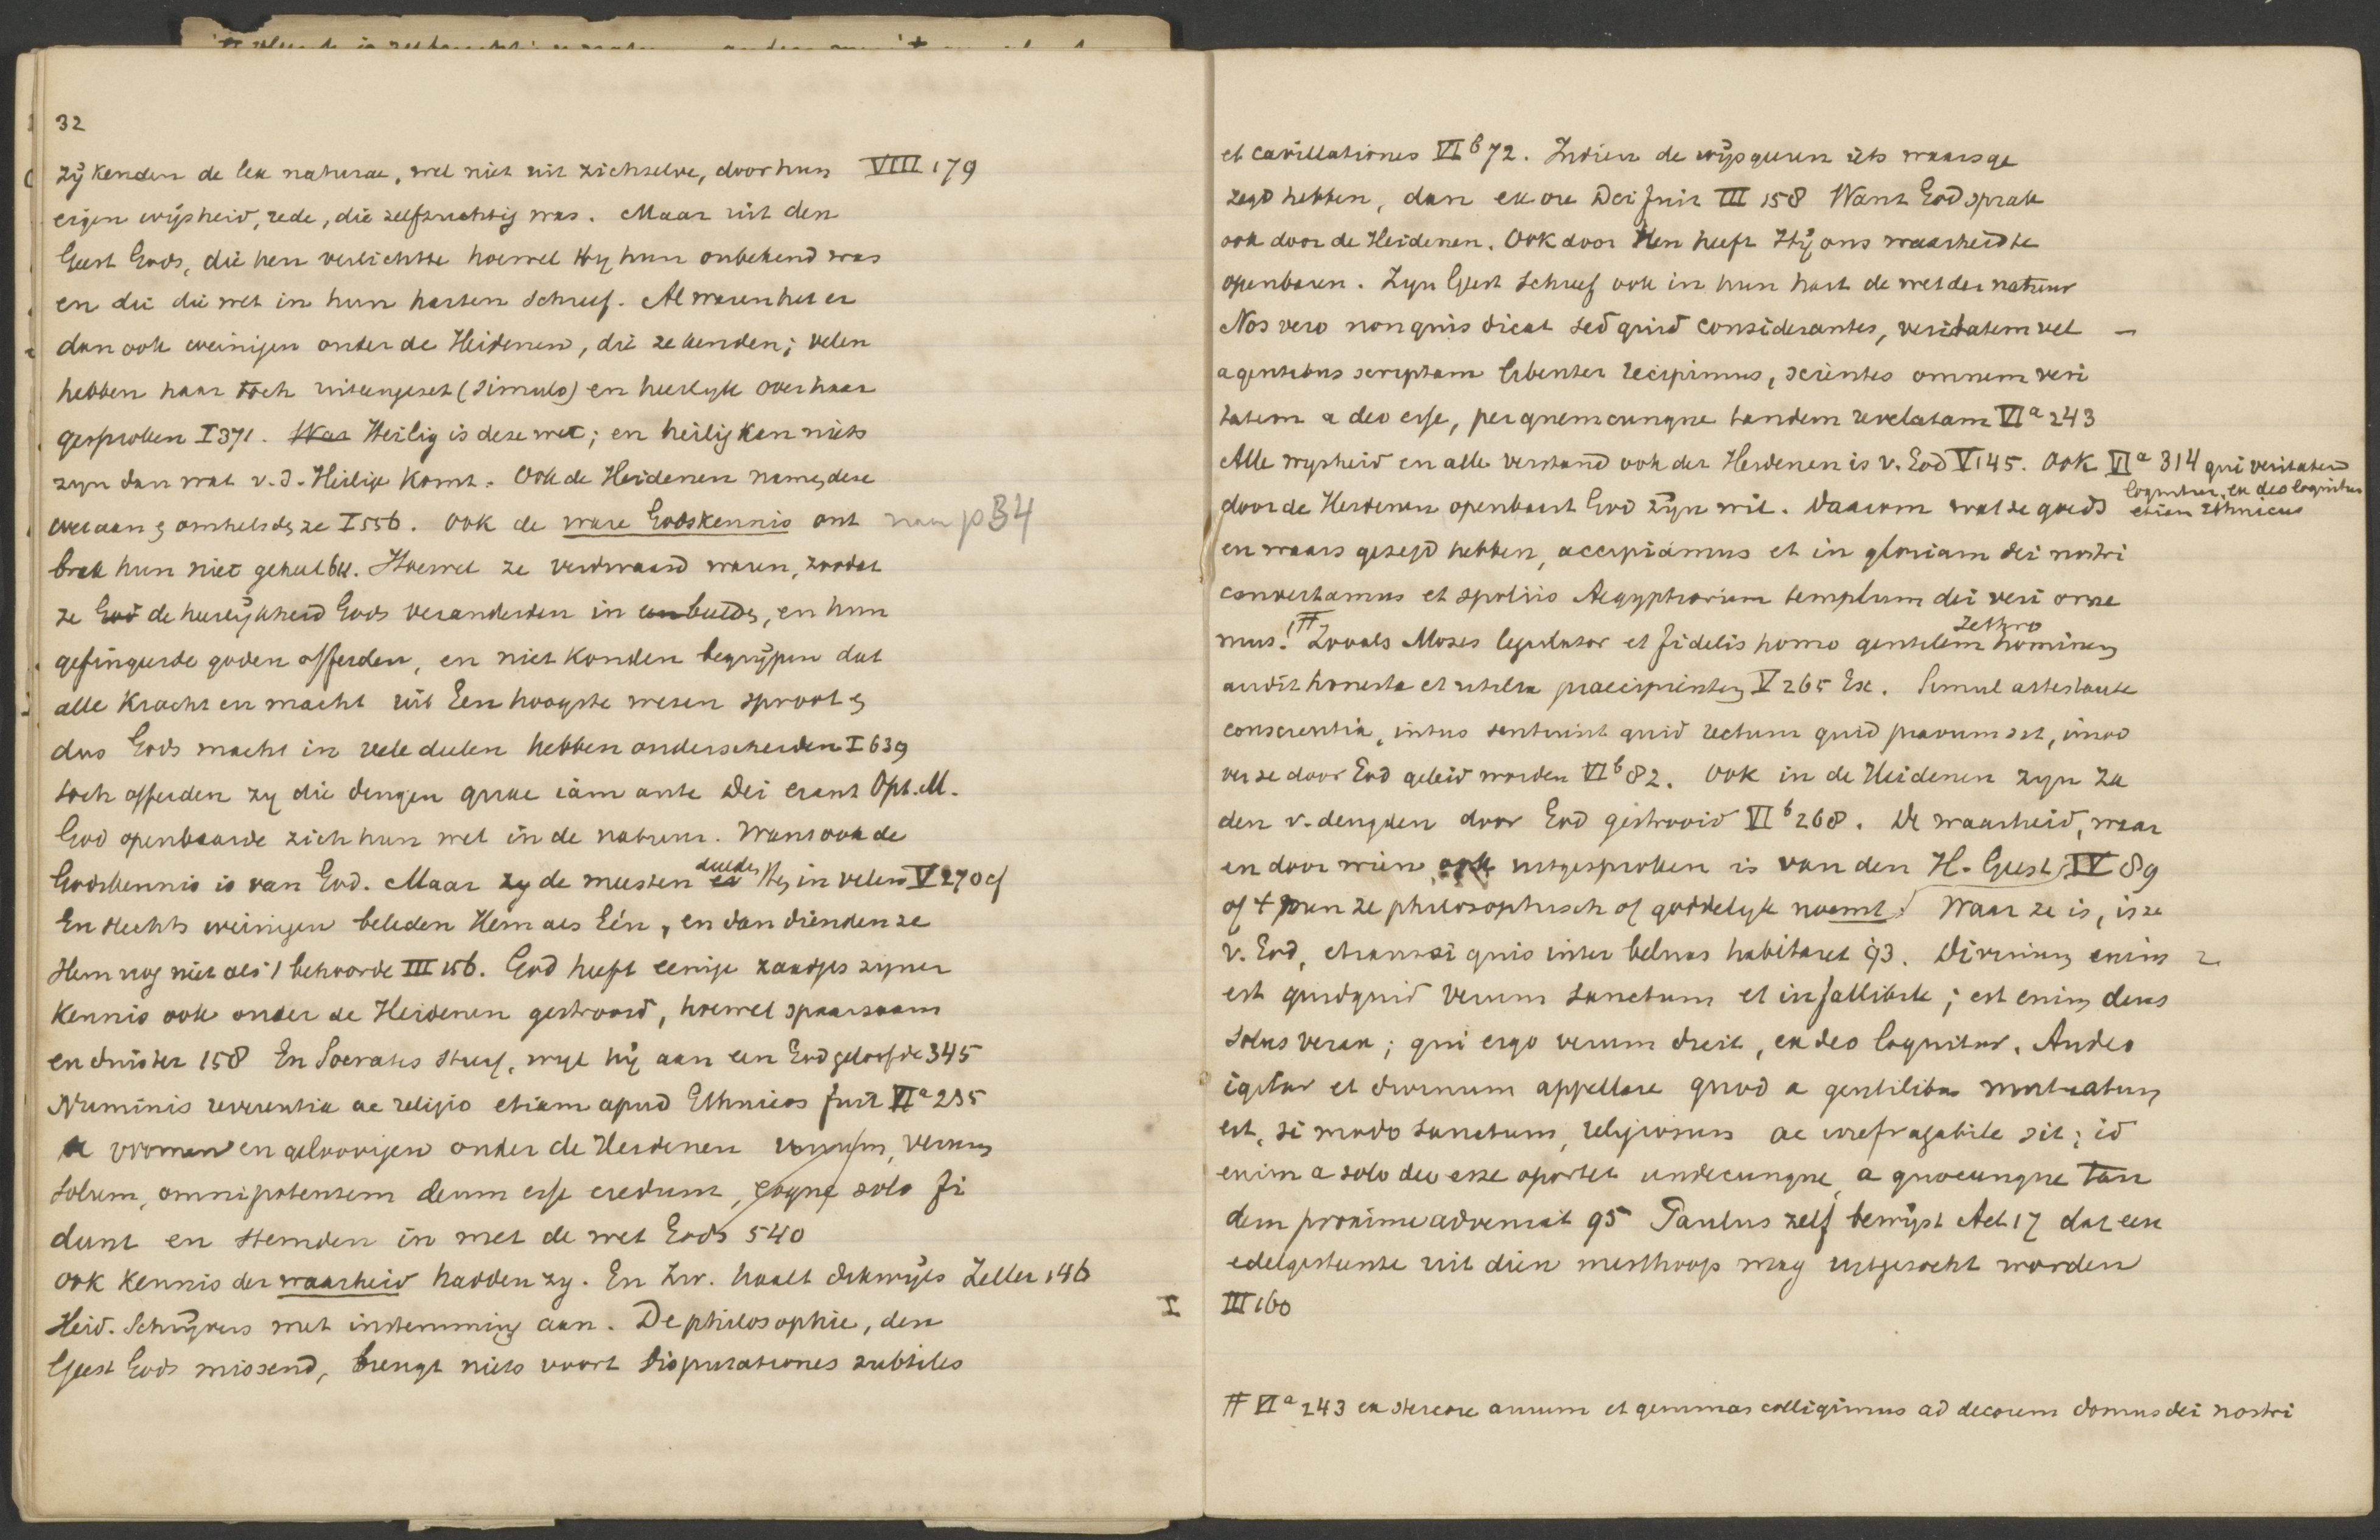 32
Zij kenden de lex naturae, wel niet uit zichzelve, door hun VIII 179
eigen wijsheid, rede, die zelfzuchtig was. Maar uit den
Geest Gods, die hen verlichtte hoewel Hy hun onbekend was
en die die wet in hun harten schreef. Al waren het er
dan ook weinigen onder de Heidenen, die ze kenden; velen
hebben haar toch uiteengezet (simulo) en heerlyk over haar
gesproken I 371. Was Heilig is deze wet; en heilig kan niets
zyn dan wat v. d. Heilige komt. Ook de Heidenen namen deze
wet aan & omhelsden ze I 556. Ook de ware Godskennis ont naar p 34
brak hun niet geheel bll. Hoewel ze verdwaasd waren, zoodat
ze God de heerlijkheid Gods veranderden in een beelden, en hun
gefingeerde goden offerden, en niet konden begrijpen dat
alle kracht en macht uit Een hoogste wezen sproot &
dus Gods macht in vele deelen hebben onderscheiden I 639
toch offerden zy die dengen quae iam ante Dei erant Opt. M.
God openbaarde zich hun wel in de natuur. Want ook de
Godskennis is van God. Maar zy de meesten deelden Hem in velen V 270 cf
En slechts weinigen beleden Hem als Eén, en dan dienden ze
Hem nog niet als 't behoorde III 156. God heeft eenige zaadjes zyner
Kennis ook onder de Heidenen gestrooid, hoewel spaarzaam
en duister 158 En Socrates stierf, wyl hij aan een God geloofde 345
Numinis reverentia ac religio etiam apud Ethnicos fuit VIa 235
vromen en geloovigen onder de Heidenen unum, verum
solum, omnipotentem deum esse credunt, eoque solo fi
dunt en stemden in met de wet Gods 540
Ook kennis der waarheid hadden zy. En Zw. haalt dikwijls Zeller 146
Heid. Schrijvers met instemming aan. De philosophie, den
Geest Gods missend, brengt niets voort disputationes subtiles
et cavillationes VI b 72. Indien de wijsgeeren iets waars ge
zegd hebben, dan ex ore Dei fuit III 158 Want God sprak
ook door de Heidenen. Ook door Hen heeft Hij ons waarheid te
openbaren. Zyn Geest schreef ook in hun hart de wet der natuur
Nos vero non quis dicat sed quid considerantes, veritatem vel –
a gentibus scriptam libenter recipimus, scientes omnem veri
tatem a deo esse, per quemcunque tandem revelatam VI a 243
Alle wysheid en alle verstand ook der Heidenen is v. God V 145. Ook VI a 314 qui veritatem
loquitur, ex deo loquitur
etiam Ethnicus
door de Heidenen openbaart God zijn wil. Daarom wat ze goeds
en waars gezegd hebben, accipiamus et in gloriam dei nostri
convertamus et spoliis Aegyptiorum templum dei veri orne
mus. # Zooals Moses legislator et fidelis homo gentilem hominem Jethro
audit honesta et utilia praecipientem V 265 Ex. Simul attestante
conscientia, intus sentiunt quid rectum quid pravum sit, inso
ver ze door God geleid worden VI b 82. Ook in de Heidenen zyn za
den v. deugden door God gestrooid VI b 268. De waarheid, waar
en door wien ook uitgesproken is van den H. Geest, IV 89
of men ze philosophisch of goddelyk noemt Waar ze is, is ze
v. God, etiamsi quis inter beluas habitaret 93. Divinum enim 2
est quidquid verum sanctum et infallibile; est enim deus
solus verax; qui ergo verum dicit, ex deo loquitur. Audeo
igitur et divinum appellare quod a gentilibus mutuatum
est, si modo sanctum, religiosum ac irrefragabile sit; id
enim a solo deo esse oportet undecunque, a quocunque tan
dem proxime adveniat 95 Paulus zelf bewijst Act 17 dat een
edelgesteente uit dien mesthoop mag uitgezocht worden
I III 160
# VI a 243 ex stercore aurum et gemmas colligimus ad decorem domus dei nostri